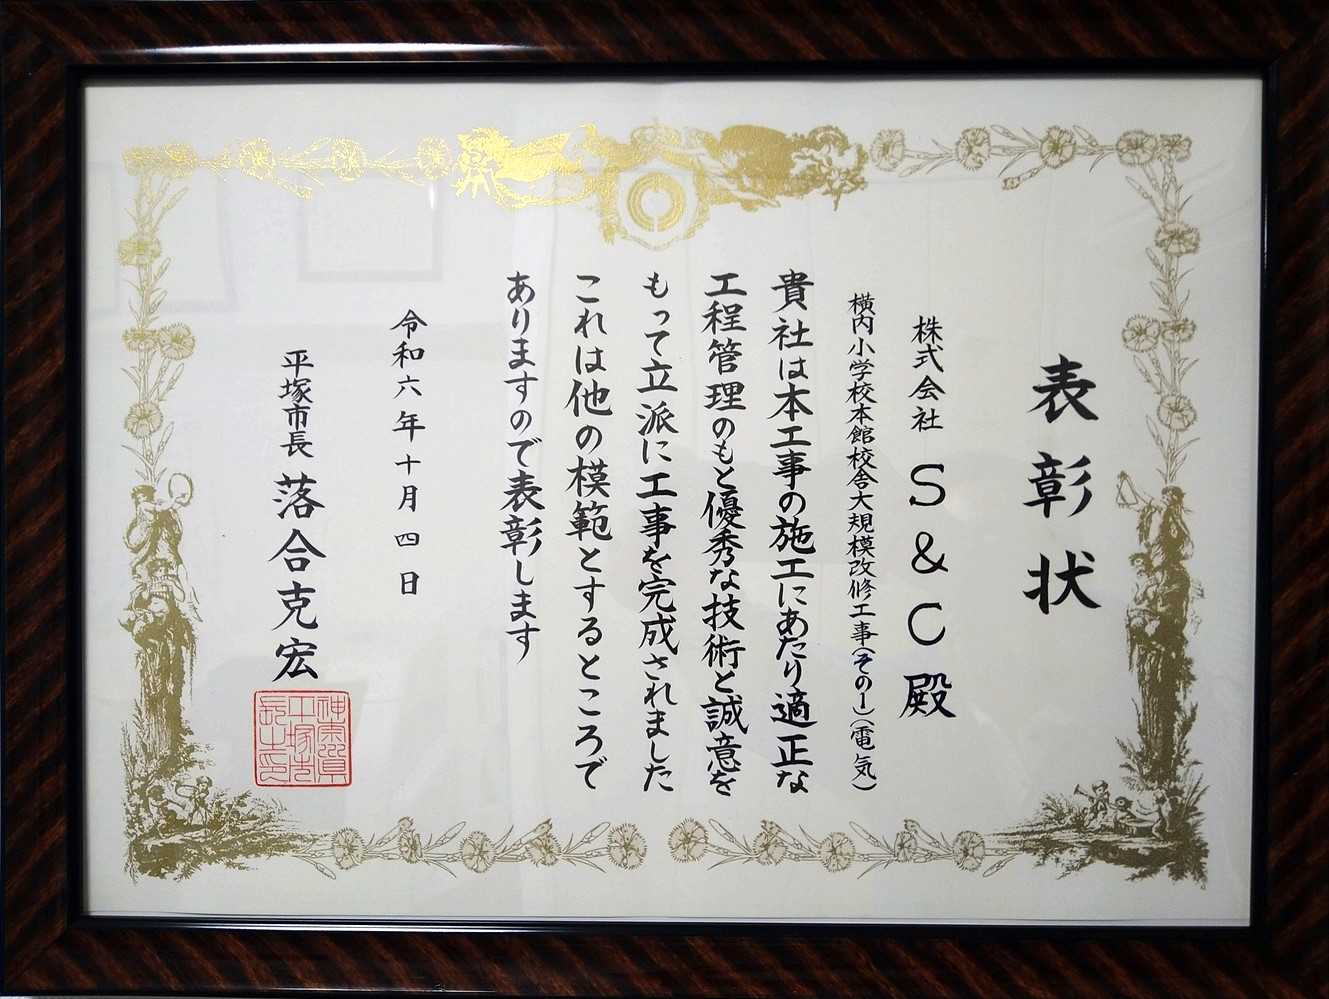 表彰状
株式会社 S&C 殿
横内小学校本館校舎大規模改修工事(その1)(電気)
貴社は本工事の施工にあたり適正な
工程管理のもと優秀な技術と誠意を
もって立派に工事を完成されました
これは他の模範とするところで
ありますので表彰します
令和六年十月四日
平塚市長 落合克宏
神奈川県
平塚市
長之印